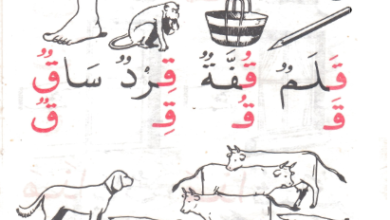 قَلَمٌ قُفَّةٌ قِرْدٌ سَاقٌ
قَ قُ قِ قٌ